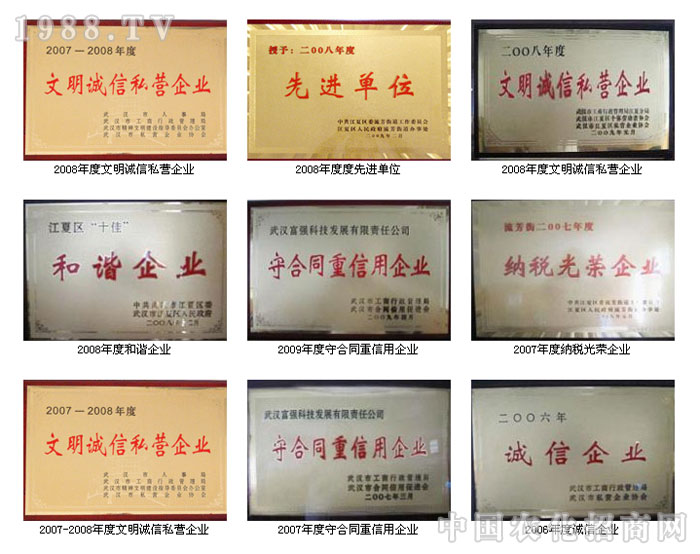 1988.TV
2007—2008年度
文明诚信私营企业
武汉市人事局
武汉市工商行政管理局
武汉市精神文明建设指导委员会办公室
武汉市私营企业协会
2008年度文明诚信私营企业
授予：二〇〇八年度
先进单位
中共江夏区委流芳街道工作委员会
江夏区人民政府流芳街道办事处
二〇〇九年二月
2008年度度先进单位
二〇〇八年度
文明诚信私营企业
武汉市工商行政管理局江夏分局
武汉市江夏区个体劳动者协会
武汉市江夏区私营企业协会
2008年度文明诚信私营企业
江夏区“十佳”
和谐企业
武汉市江夏区人民政府
2008年度和谐企业
武汉富强科技发展有限责任公司
守合同重信用企业
武汉市工商行政管理局
武汉市合同信用促进会
2009年度守合同重信用企业
流芳街二〇〇七年度
纳税光荣企业
2007年度纳税光荣企业
2007—2008年度
文明诚信私营企业
武汉市人事局
武汉市工商行政管理局
武汉市精神文明建设指导委员会办公室
武汉市私营企业协会
2007-2008年度文明诚信私营企业
武汉富强科技发展有限责任公司
守合同重信用企业
武汉市工商行政管理局
武汉市合同信用促进会
二〇〇七年三月
2007年度守合同重信用企业
二〇〇六年
诚信企业
武汉市工商行政管理局
武汉市私营企业协会
2006年度诚信企业
中国农化招商网